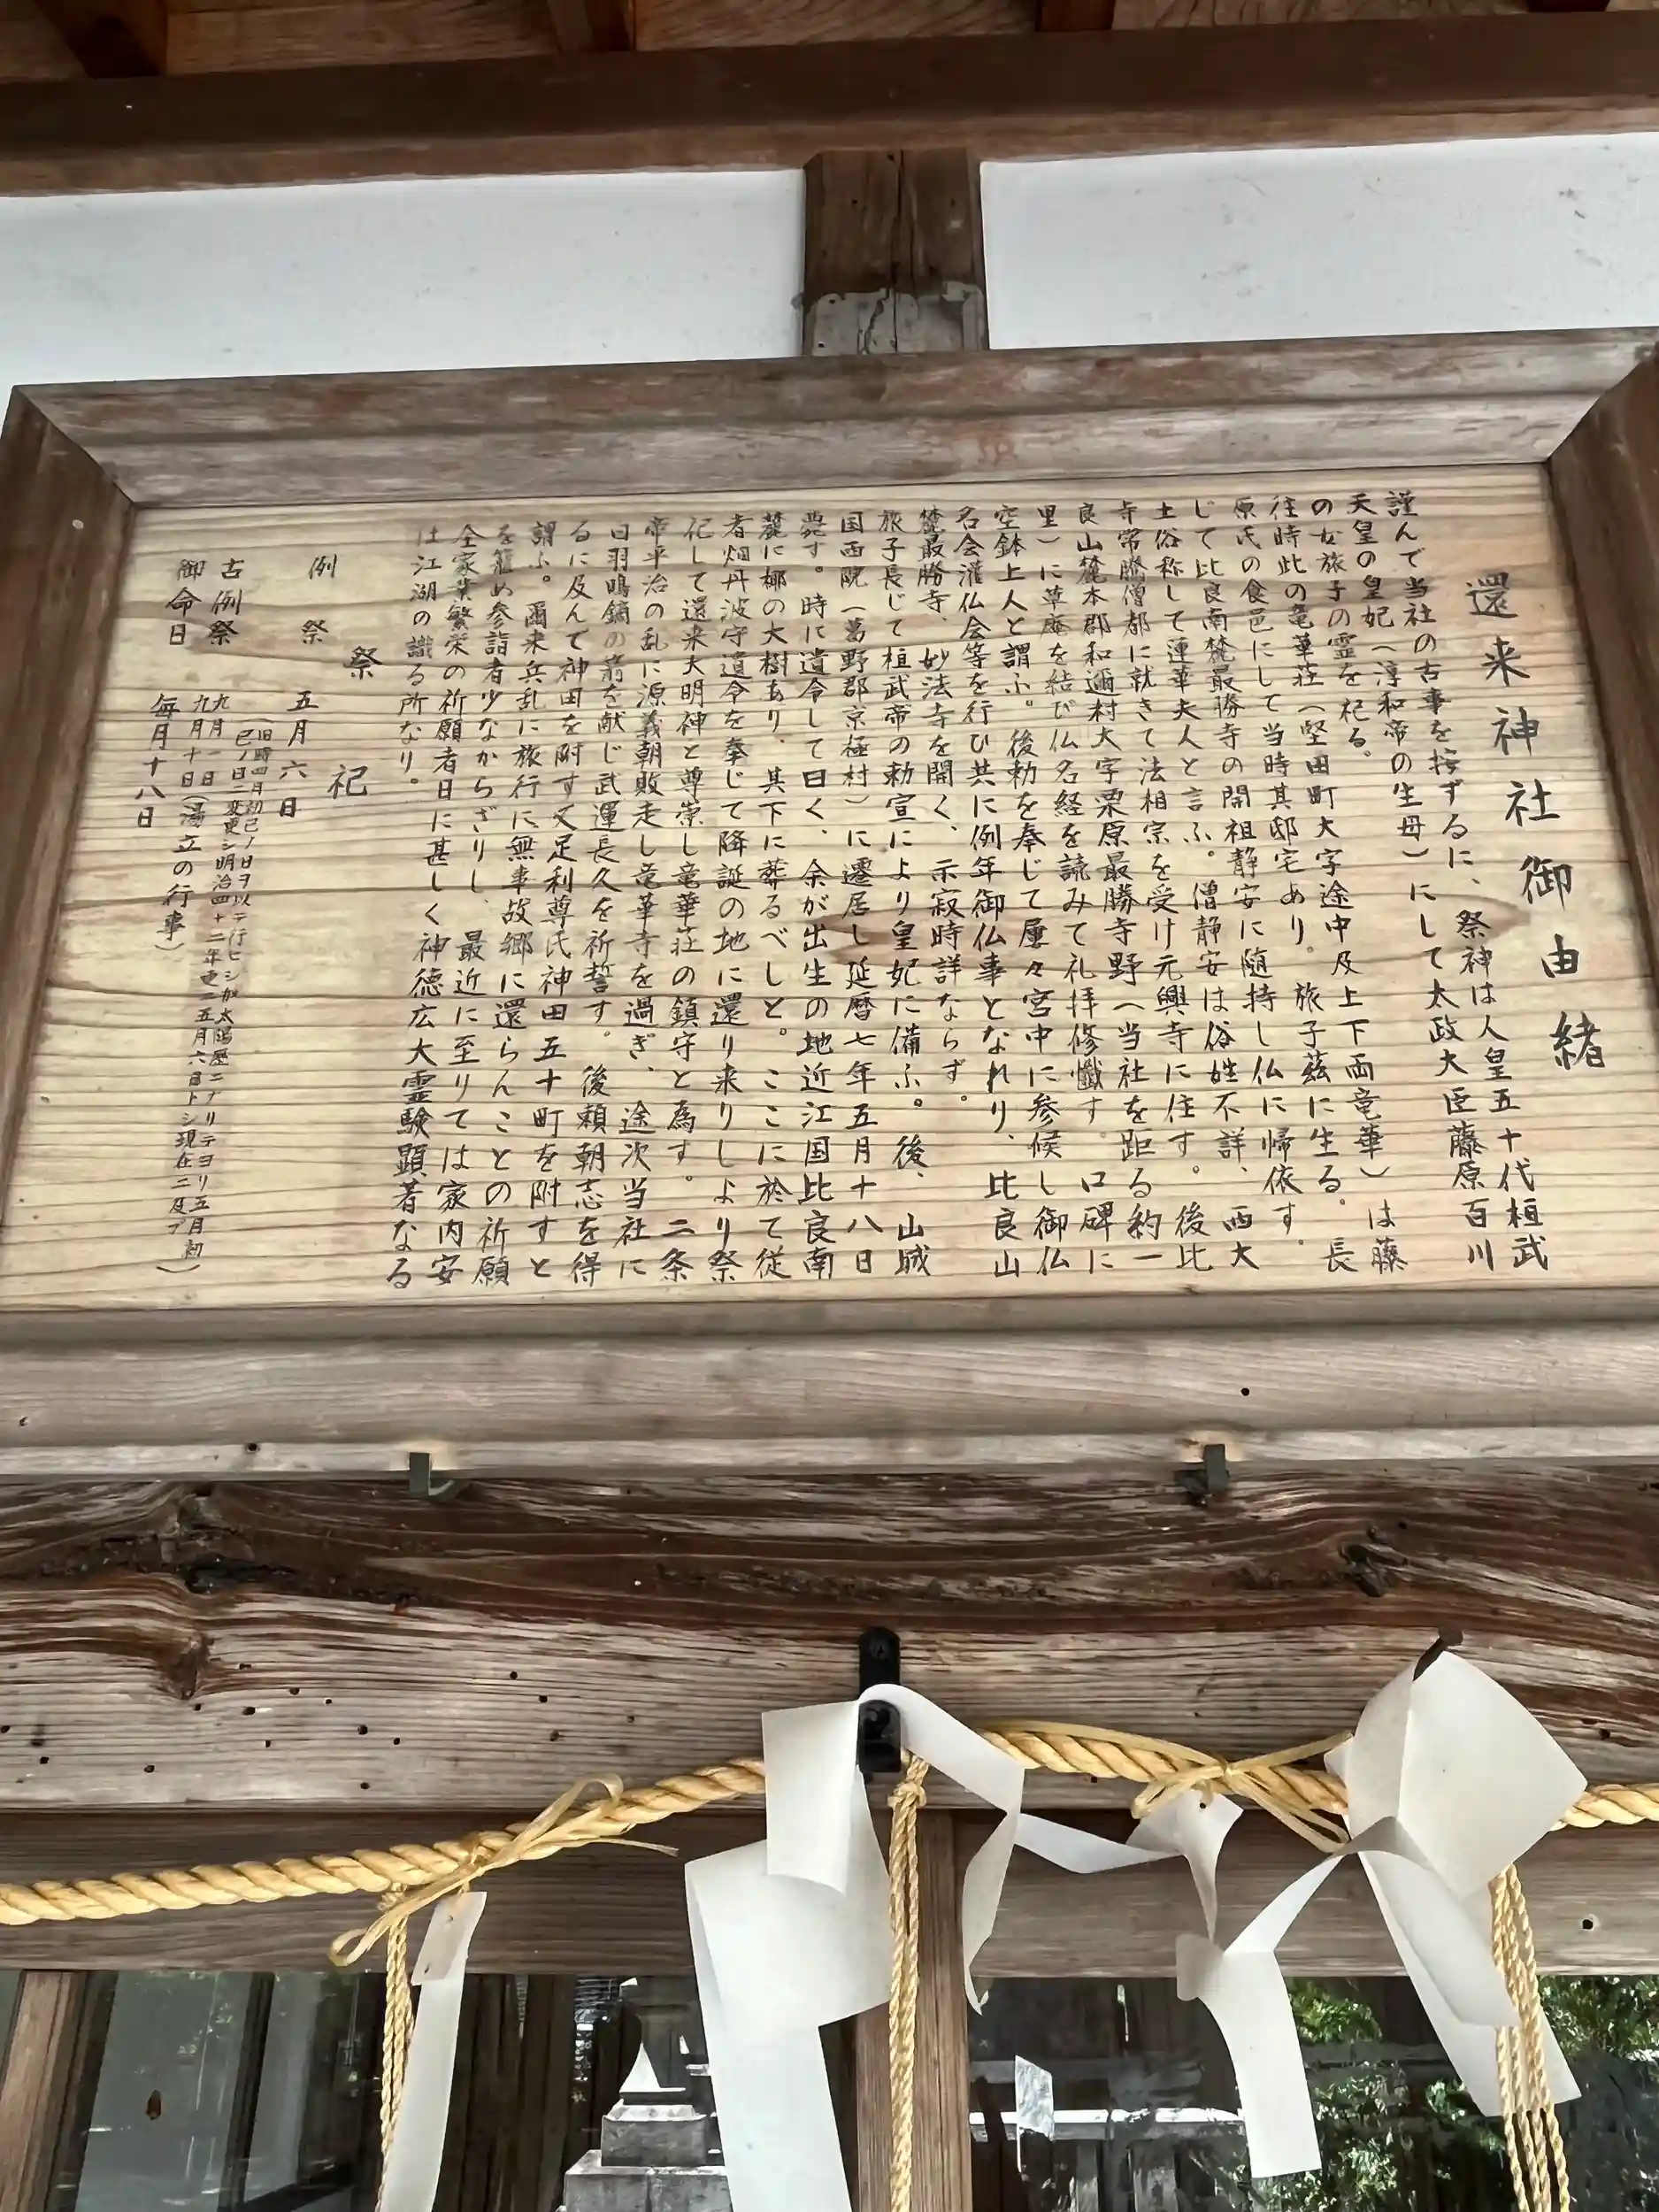 還来神社御由緒
謹んで当社の古事を按ずるに、祭神は人皇五十代桓武
天皇の皇妃（淳和帝の生母）にして太政大臣藤原百川
の女旅子の霊を祀る。
往時此の竜華荘（堅田町大字途中及上下両竜華）は藤
原氏の食邑にして当時其邸宅あり。旅子茲に生る。長
じて比良南麓最勝寺の開祖静安に随持し仏に帰依す。
土俗称して蓮華夫人と言ふ。僧静安は俗姓不詳、西大
寺常騰僧都に就きて法相宗を受け元興寺に住す。後比
良山麓本郡和邇村大字栗原最勝寺野（当社を距る約一
里）に草庵を結び仏名経を読みて礼拝修懺す。口碑に
空鉢上人と謂ふ。後勅を奉じて屡々宮中に参候し御仏
名会灌仏会等を行ひ共に例年御仏事となれり、比良山
麓最勝寺、妙法寺を開く、示寂時詳ならず。
旅子長じて桓武帝の勅宣により皇妃に備ふ。後、山城
国西院（葛野郡京極村）に遷居し延暦七年五月十八日
薨す。時に遺令して曰く、余が出生の地近江国比良南
麓に梛の大樹あり、其下に葬るべしと。ここに於て従
者畑丹波守遺令を奉じて降誕の地に還り来りしより祭
祀して還来大明神と尊崇し竜華荘の鎮守と為す。二条
帝平治の乱に源義朝敗走し竜華寺を過ぎ、途次当社に
白羽鳴鏑の箭を献じ武運長久を祈誓す。後頼朝志を得
るに及んで神田を附す又足利尊氏神田五十町を附すと
謂ふ。爾来兵乱に旅行に無事故郷に還らんことの祈願
を籠め参詣者少なからざりし、最近に至りては家内安
全家業繁栄の祈願者日に甚しく神徳広大霊験顕著なる
は江湖の識る所なり。
祭祀
例祭 五月六日
（旧時四月初已ノ日ヲ以テ行ヒシガ太陽歴ニナリテヨリ五月初
已ノ日ニ変更シ明治四十二年更ニ五月六日トシ現在ニ及ブ）
古例祭 九月一日
九月十日（湯立の行事）
御命日 毎月十八日